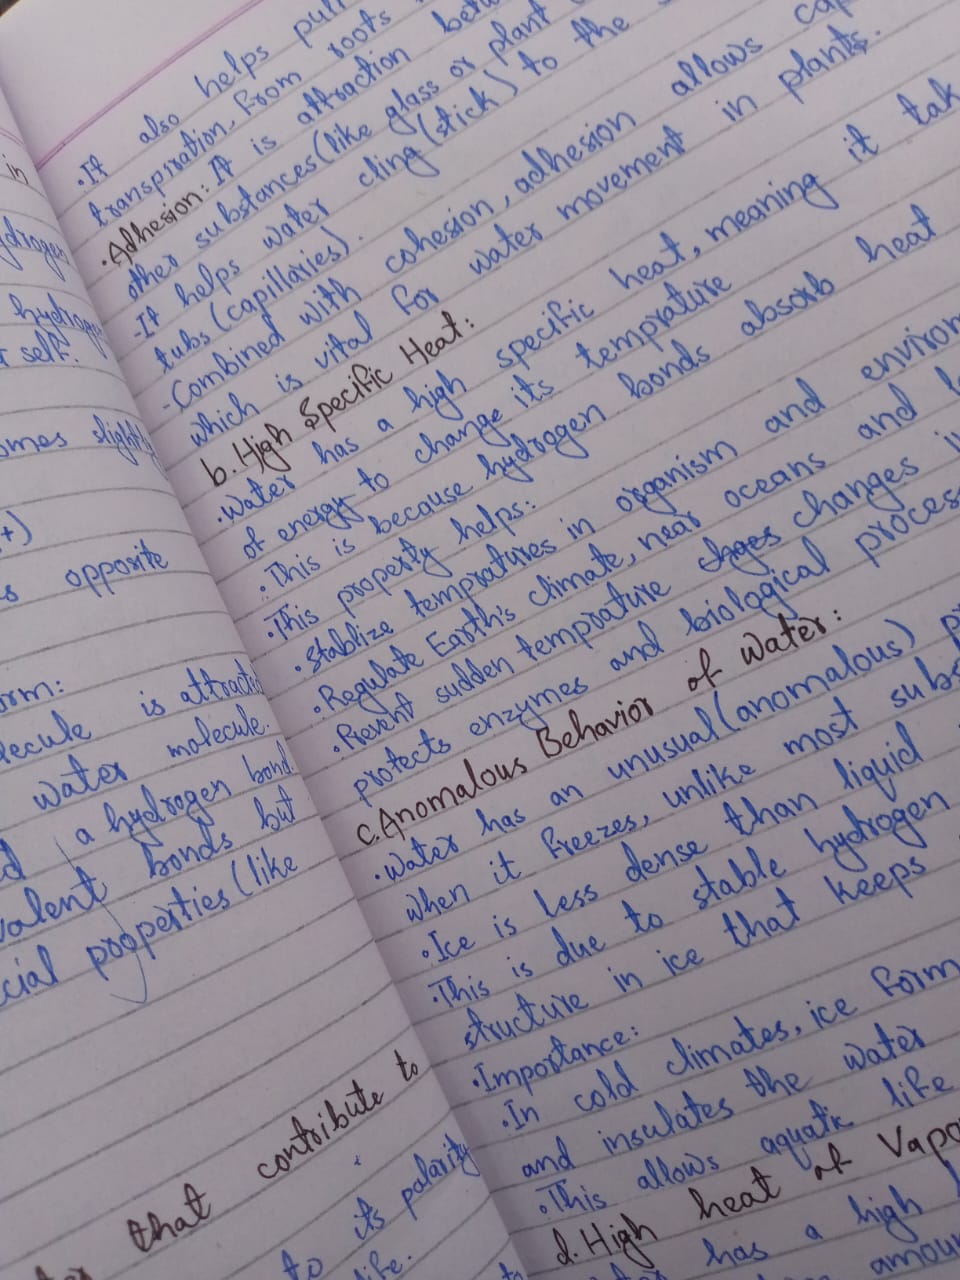 in
hydrogen
self.
slightly
+)
opposite
orm:
is attracted
water molecule.
a hydrogen bond
bonds but
properties (like
that contribute to
to its polarity
life.
. It also helps pull
transpiration, from roots
. Adhesion: It is attraction
other substances (like glass or plant
- It helps water cling (stick) to the
tubs (capillaries).
- Combined with cohesion, adhesion allows
which is vital for water movement in plants.
b. High Specific Heat:
. Water has a high specific heat, meaning it
of energy to change its temprature
. This is because hydrogen bonds absorb heat
. This property helps:
. Stablize tempratures in organism and
. Regulate Earth's climate, near oceans and
. Prevent sudden temprature chages changes
protects enzymes and biological
c. Anomalous Behavior of Water:
. Water has an unusual (anomalous)
when it freezes, unlike most
. Ice is less dense than liquid
. This is due to stable hydrogen
structure in ice that keeps
. Importance:
. In cold climates, ice
and insulates the water
. This allows aquatic life
d. High heat of
has a high